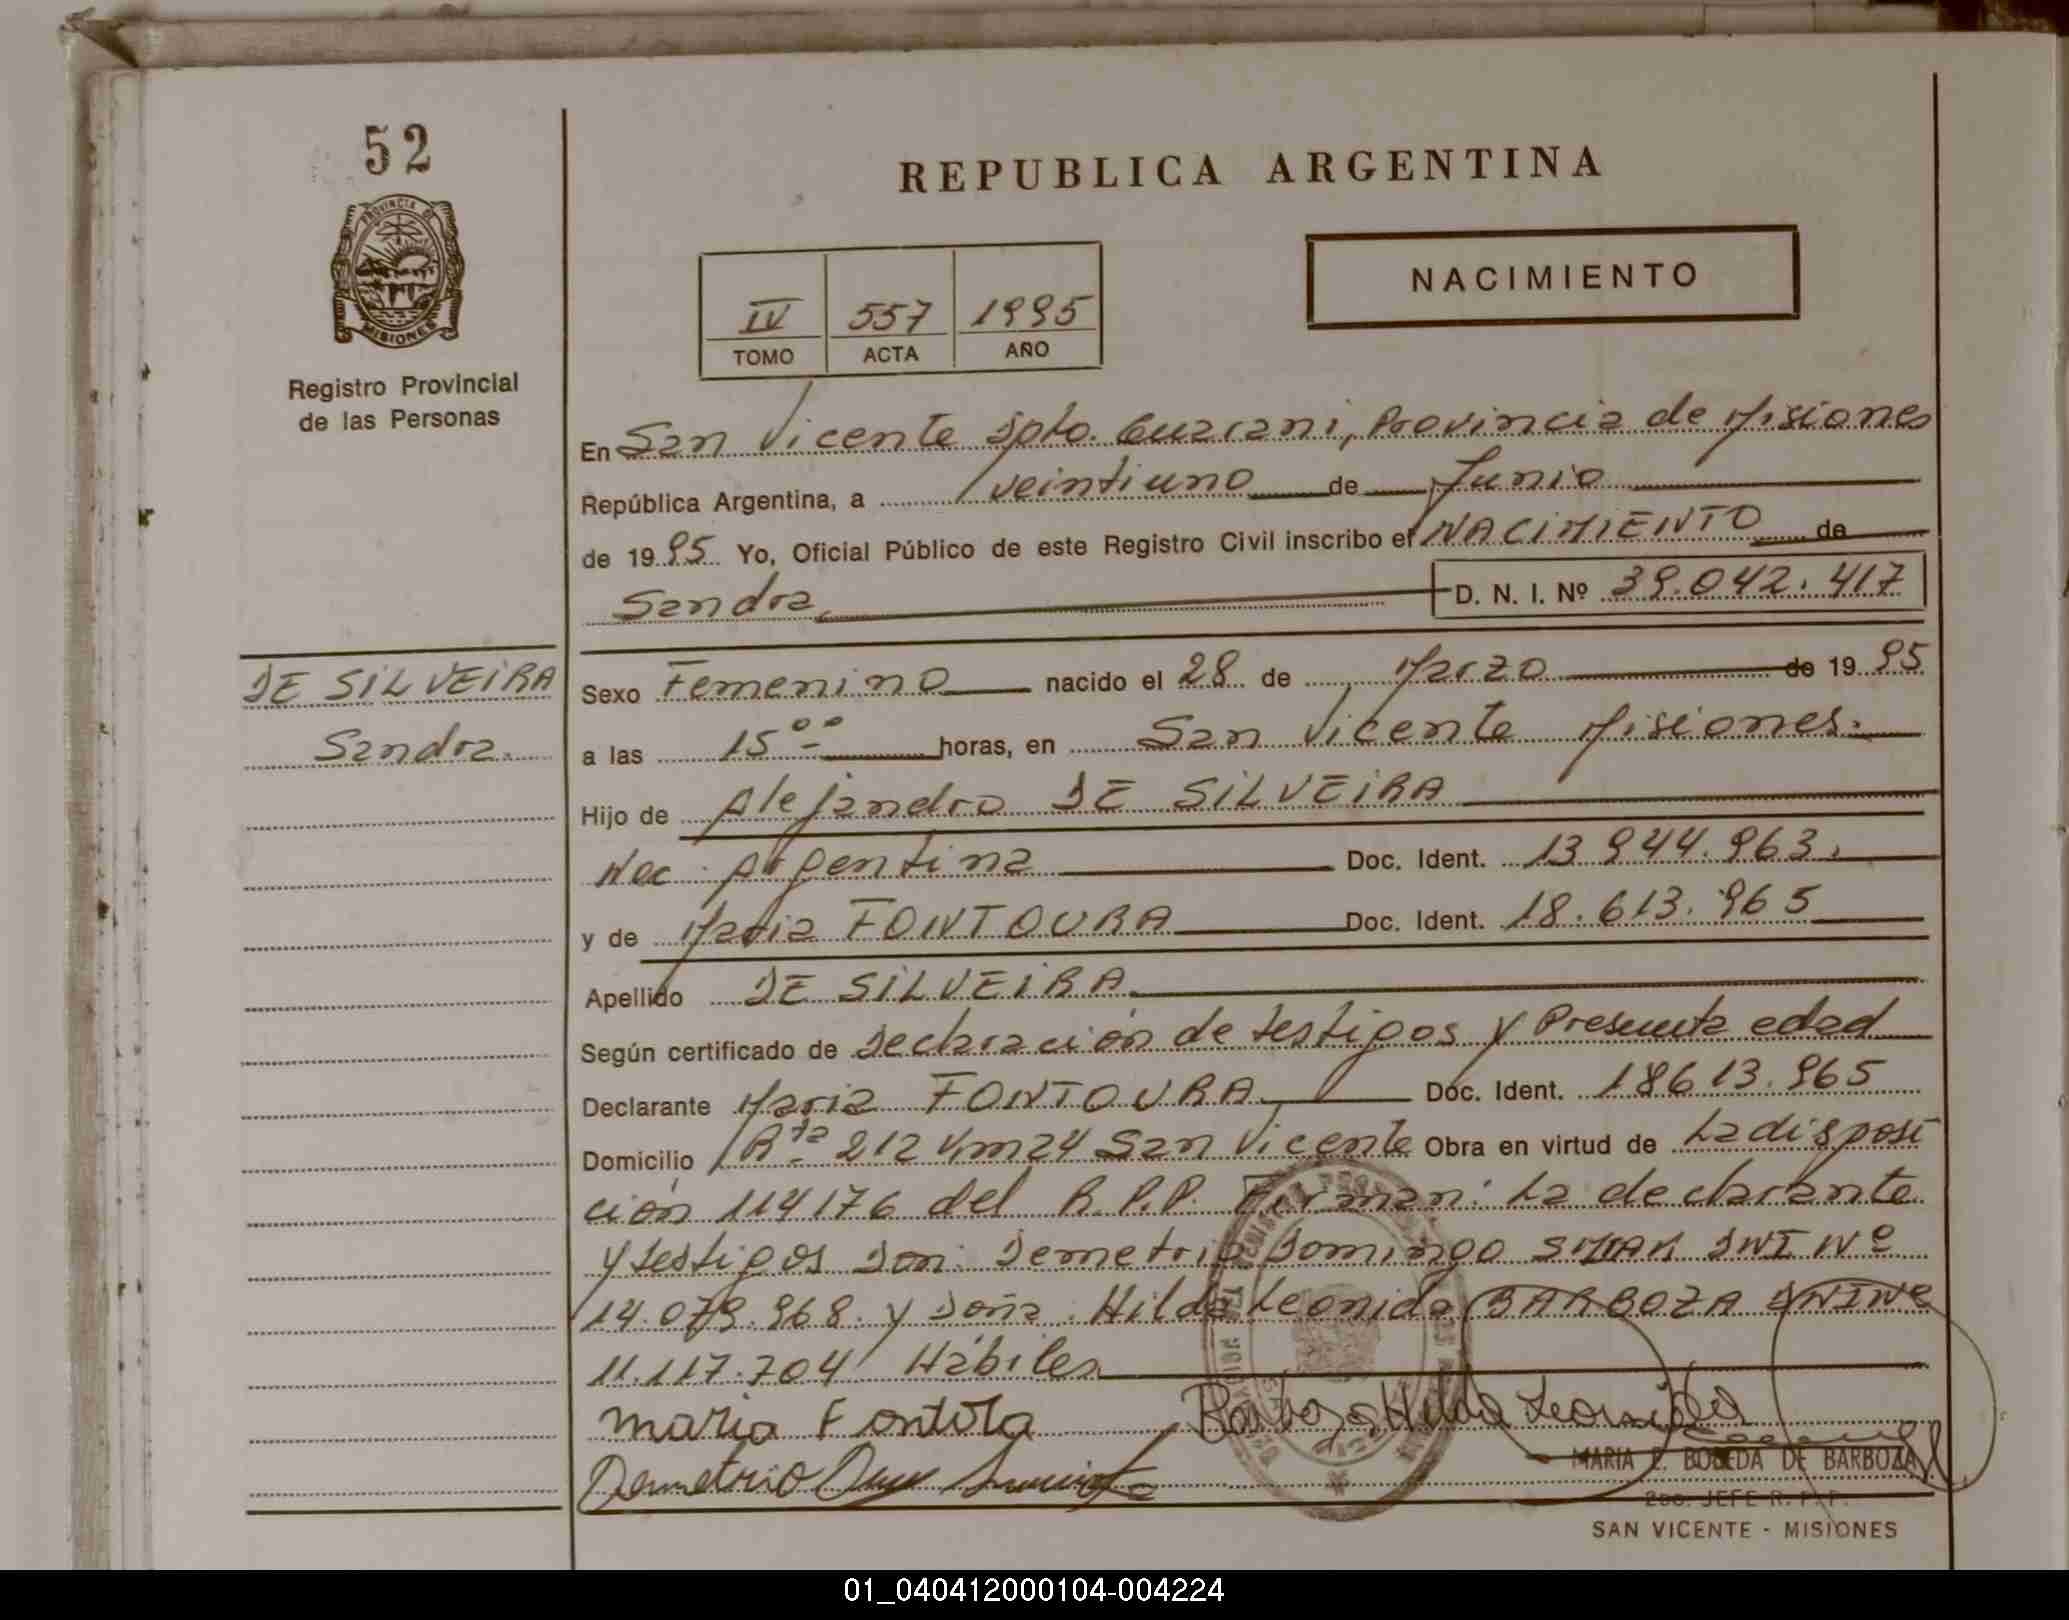 52
PROVINCIA DE
MISIONES
Registro Provincial
de las Personas
REPUBLICA ARGENTINA
NACIMIENTO
IV 557 1995
TOMO ACTA AÑO
En San Vicente Dpto. Guarani, Provincia de Misiones
República Argentina, a veintiuno de Junio
de 1995 Yo, Oficial Público de este Registro Civil inscribo el NACIMIENTO de
Sandra D. N. I. Nº 39.042.417
DE SILVEIRA
Sandra.
Sexo Femenino nacido el 28 de Marzo de 1995
a las 15°° horas, en San Vicente Misiones.
Hijo de Alejandro DE SILVEIRA
Nac. Argentina Doc. Ident. 13 944.963.
y de Maria FONTOURA Doc. Ident. 18.613.965
Apellido DE SILVEIRA
Según certificado de Declaración de testigos y Presunta edad
Declarante Maria FONTOURA Doc. Ident. 18613.965
Domicilio Rta 212 Km24 San Vicente Obra en virtud de La disposi
ción 114176 del R.P.P. Firman: La declarante
y testigos Don: Demetrio Domingo DNI Nº
14.079.968. y Doña. Hilda Leonida BARBOZA DNI Nº
11.117.704 Hábiles
maria Fontora Barboza Hilda Leonida
Demetrio
MARIA E. BOBEDA DE BARBOZA
2do. JEFE R. P. P.
SAN VICENTE - MISIONES
01_040412000104-004224